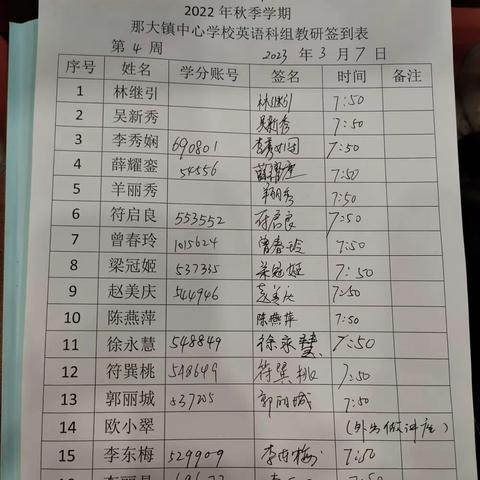 2022 年秋季学期
那大镇中心学校英语科组教研签到表
第 4 周 2023 年 3 月 7 日
序号 姓名 学分账号 签名 时间 备注
1 林继引 林继引 7:50
2 吴新秀 吴新秀 7:50
3 李秀娴 690801 李秀娴 7:50
4 薛耀銮 54556 薛耀銮 7:50
5 羊丽秀 羊丽秀 7:50
6 符启良 553552 符启良 7:50
7 曾春玲 1015624 曾春玲 7:50
8 梁冠姬 537335 梁冠姬 7:50
9 赵美庆 544946 赵美庆 7:50
10 陈燕萍 陈燕萍 7:50
11 徐永慧 548849 徐永慧 7:50
12 符巽桃 548649 符巽桃 7:50
13 郭丽城 537205 郭丽城 7:50
14 欧小翠 (外出做讲座)
15 李东梅 529909 李东梅 7:50